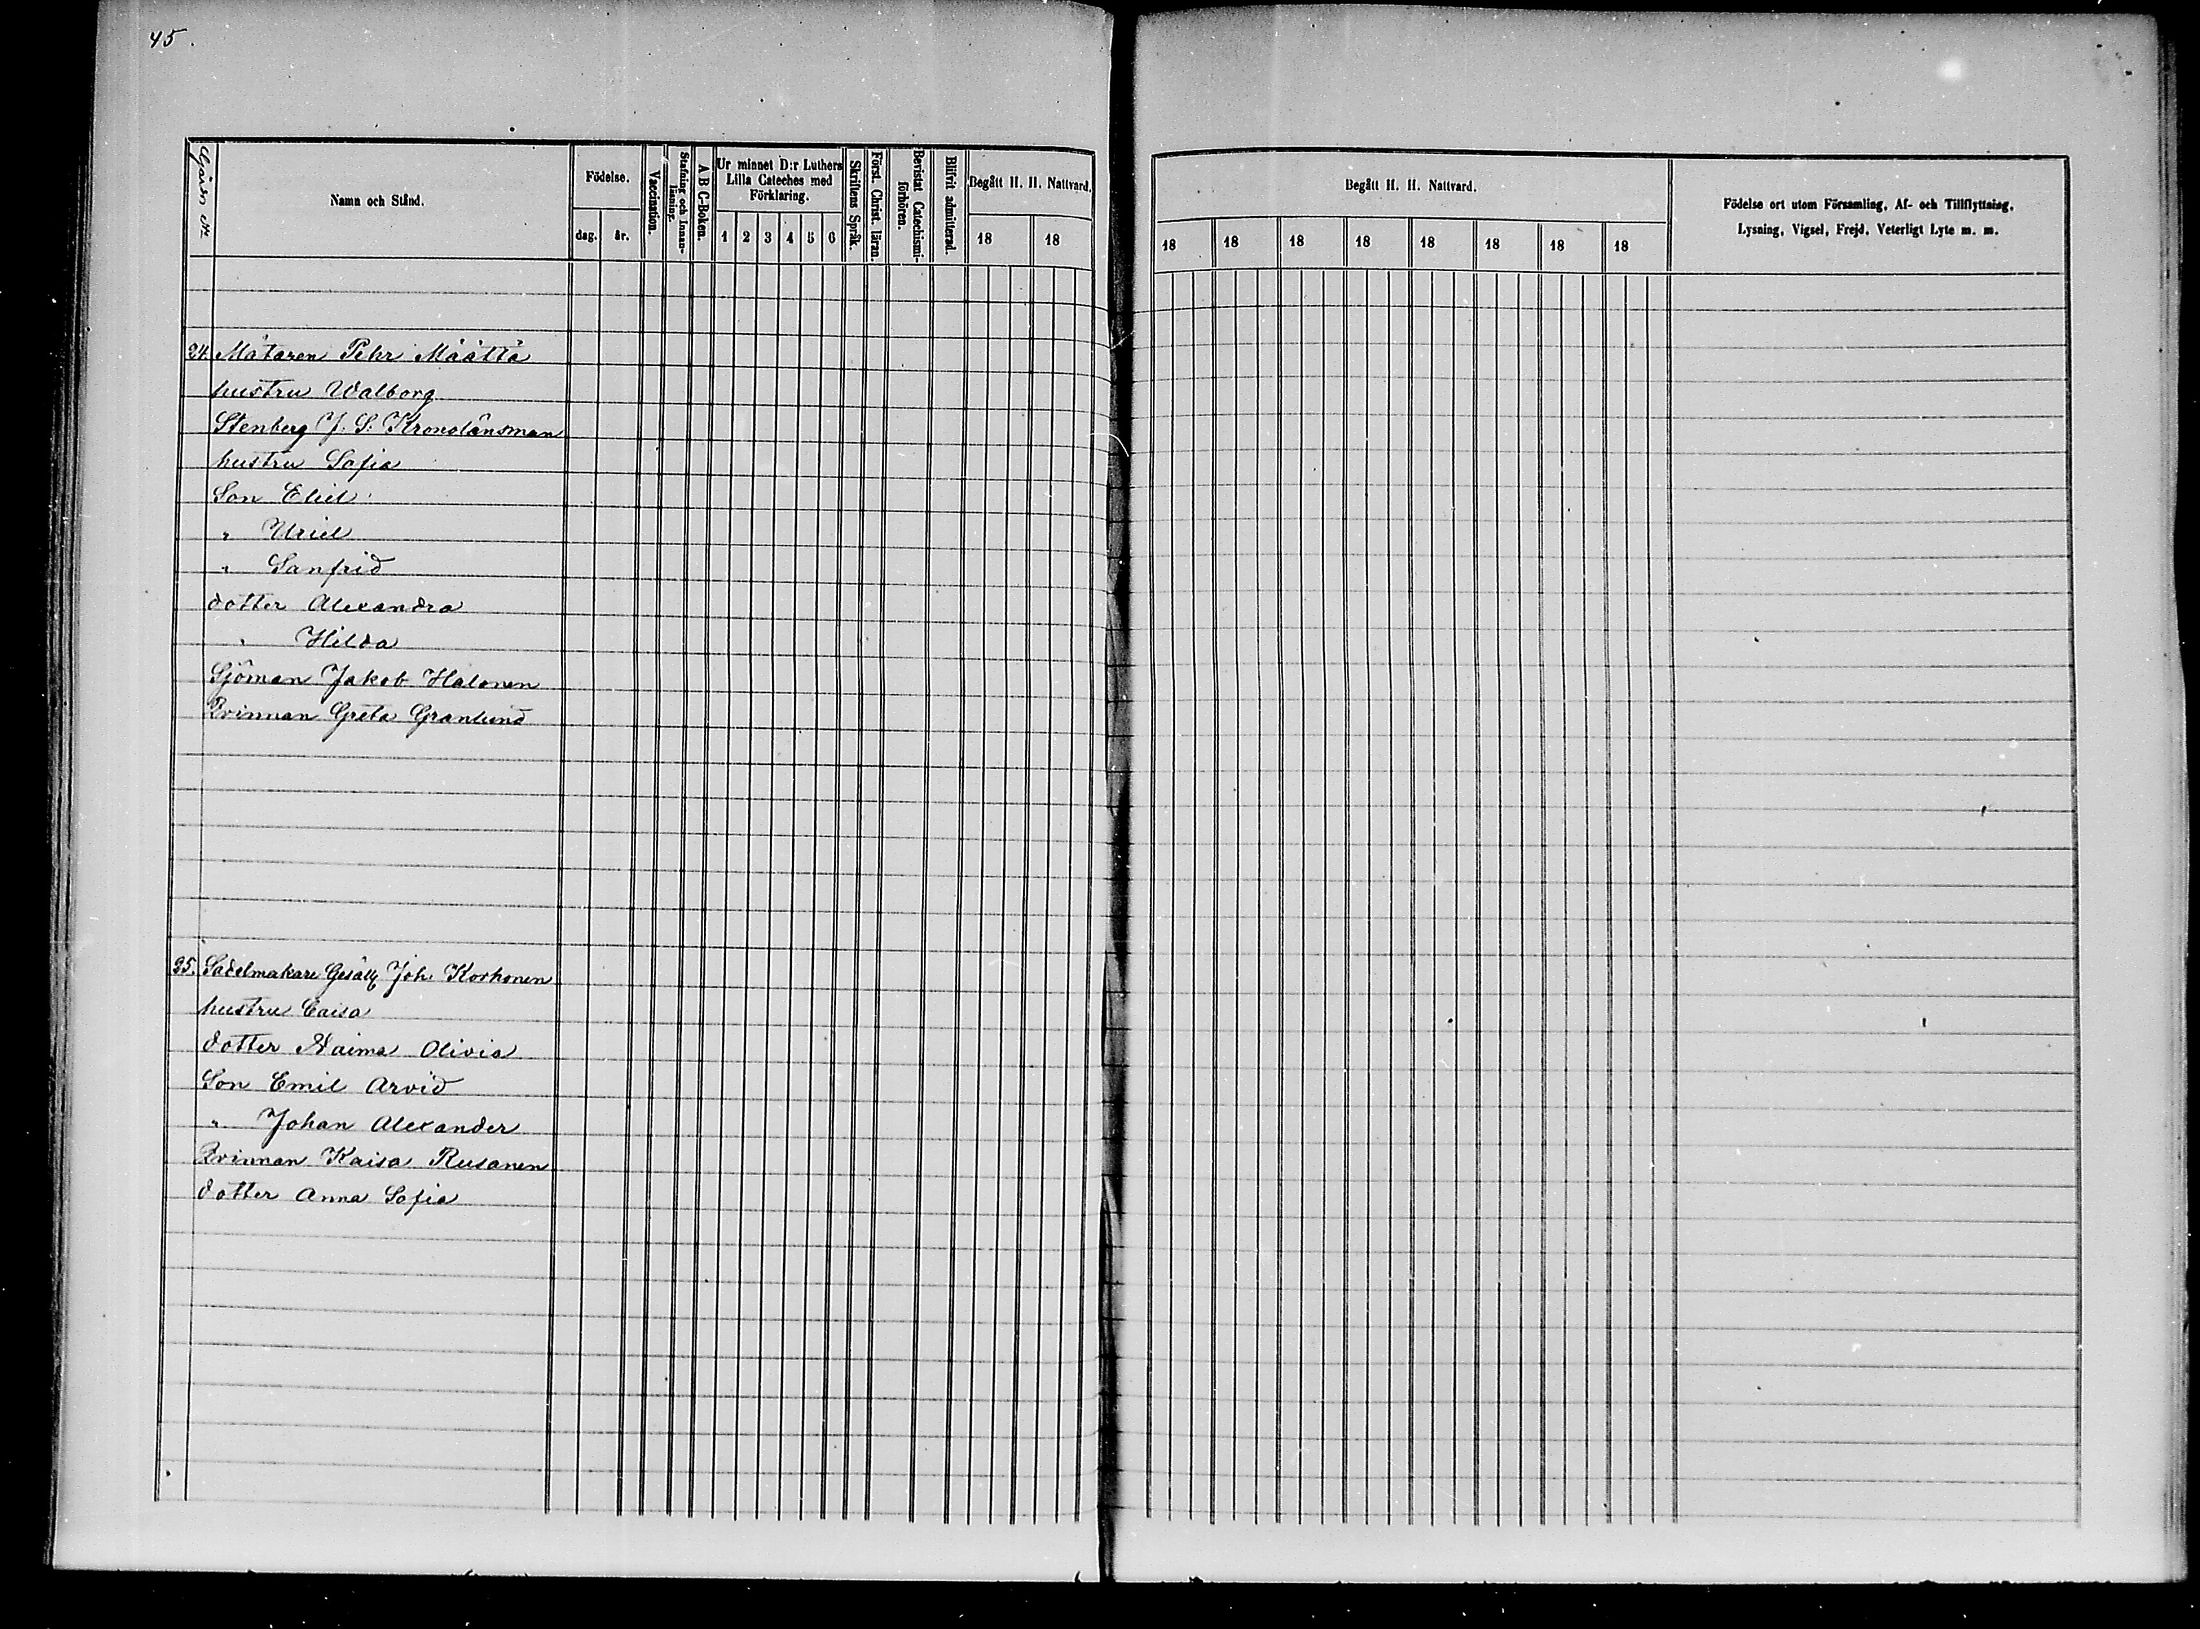 45.
Gården №
Namn och Stånd.
Födelse.
dag.
år.
Vaccination.
Stafning och Innan-
läsning.
A B C-Boken.
Ur minnet D:r Luthers
Lilla Cateches med
Förklaring.
1 2 3 4 5 6
Skriftens Språk.
Först. Christ. läran.
Bevistat Catechismi-
förhören.
Blifvit admitterad.
Begått H. H. Nattvard.
18 18
Begått H. H. Nattvard.
18 18 18 18 18 18 18 18
Födelse ort utom Församling, Af- och Tillflyttning,
Lysning, Vigsel, Frejd, Veterligt Lyte m. m.
34. Mätaren Pehr Määttä
hustru Walborg
Stenberg J. S. Kronolänsman
hustru Sofia
Son Eliel
" Uriel
" Sanfrid
dotter Alexandra
" Hilda
Sjöman Jakob Halonen
Qvinnan Greta Granlund
35. Sadelmakare Gesäll Joh. Korhonen
hustru Caisa
dotter Naima Olivia
Son Emil Arvid
" Johan Alexander
Qvinnan Kaisa Rusanen
dotter Anna Sofia